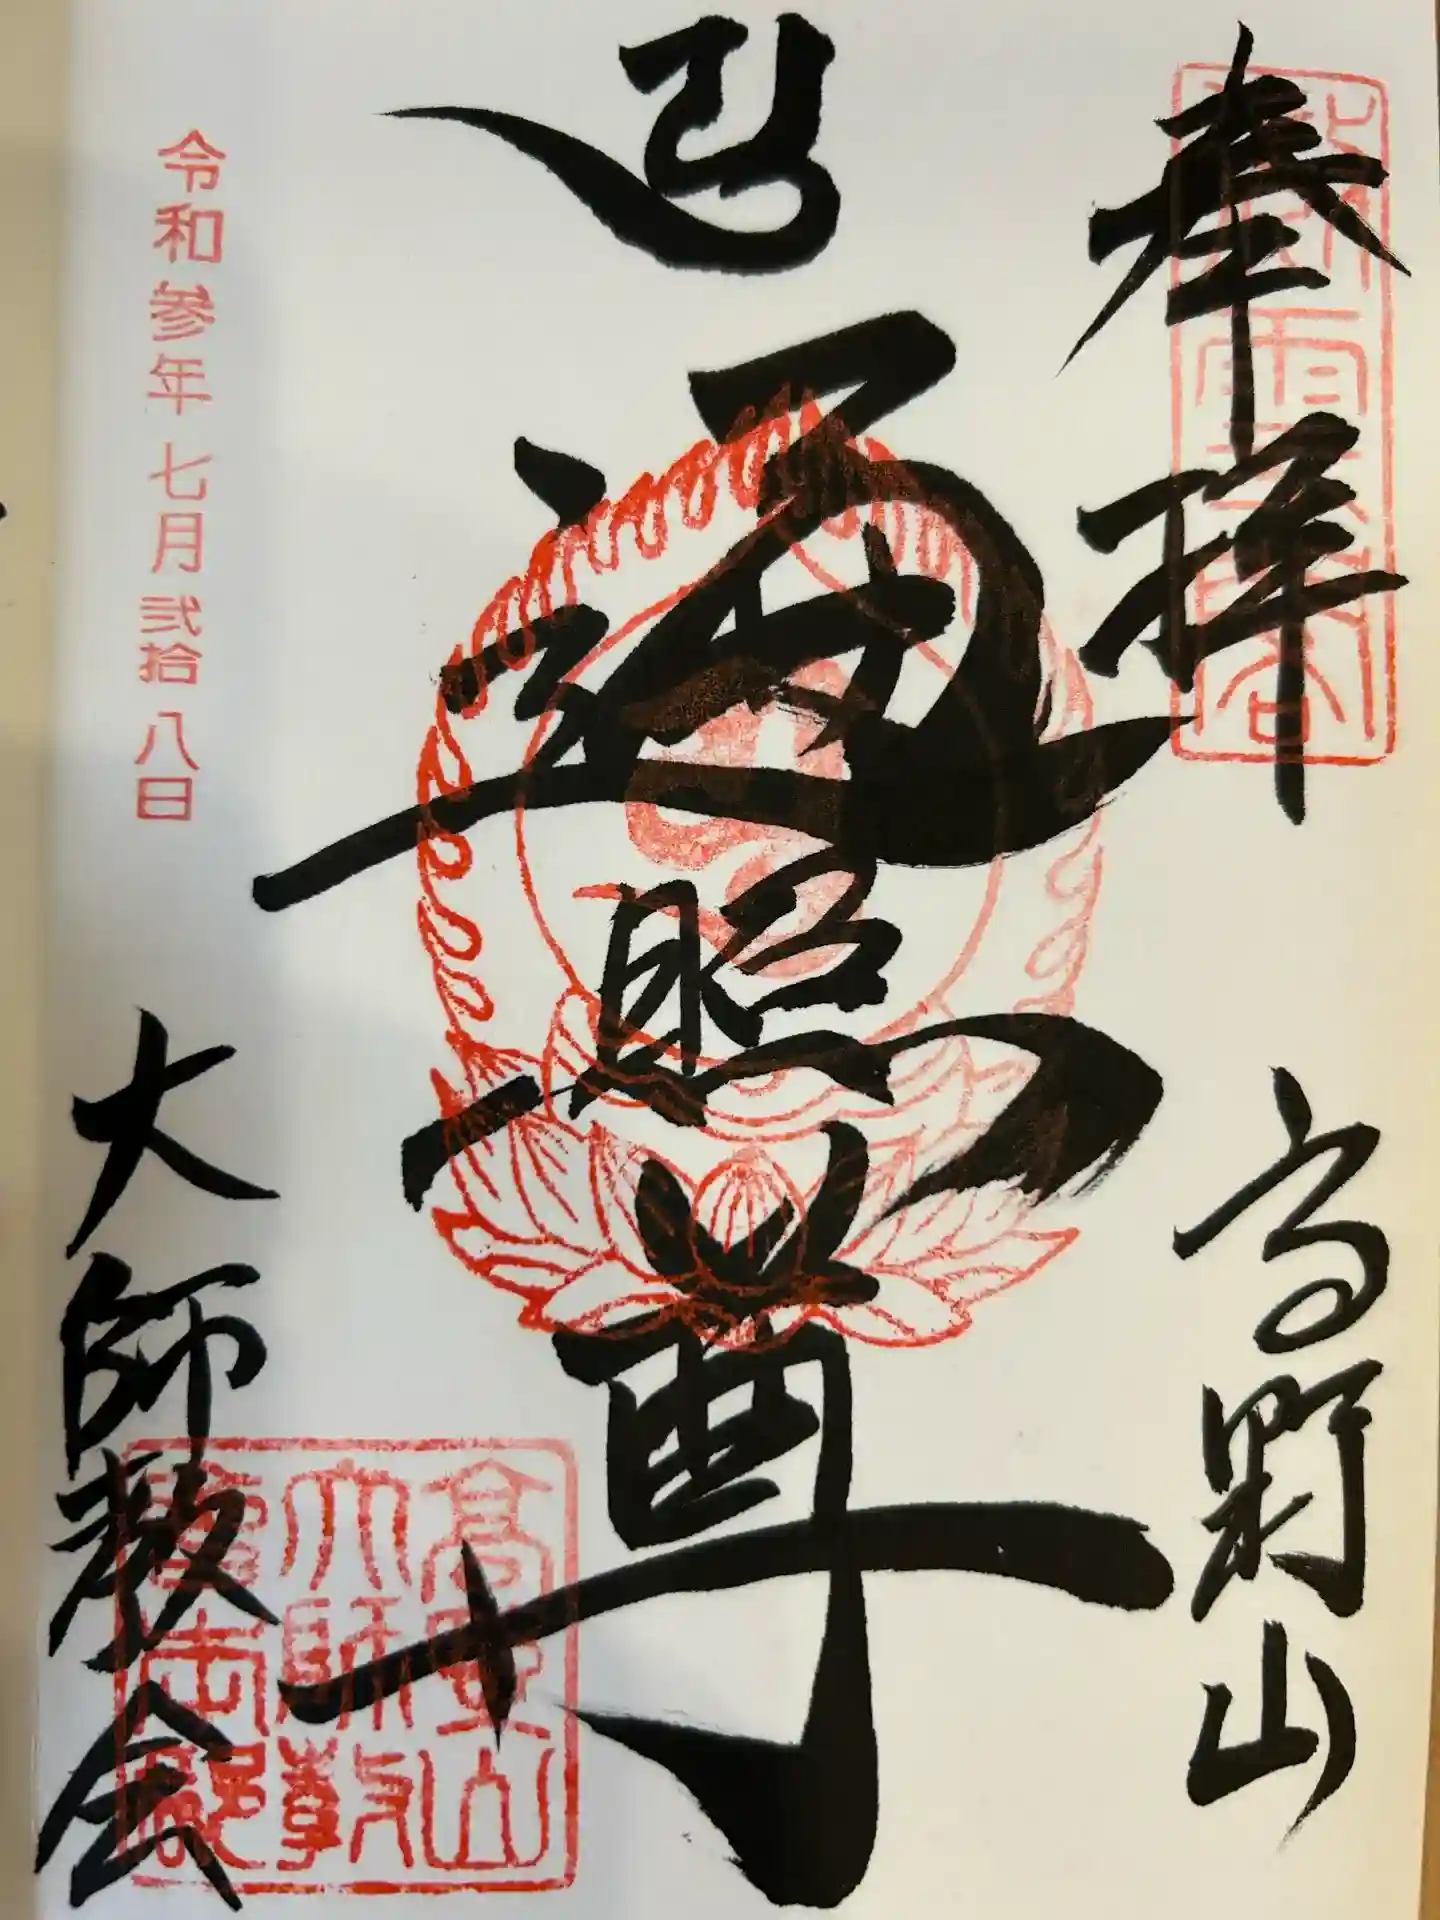 奉拝
高野山
遍照尊
令和参年七月弐拾八日
大師教会
高野山
大師教